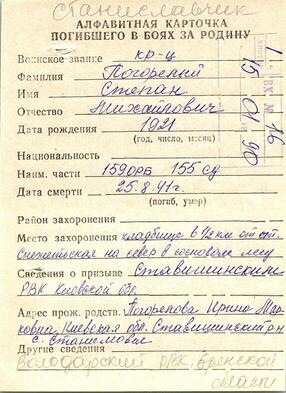 Станиславчик
АЛФАВИТНАЯ КАРТОЧКА
ПОГИБШЕГО В БОЯХ ЗА РОДИНУ
Воинское звание кр-ц
Фамилия Погорелый
Имя Степан
Отчество Михайлович
Дата рождения 1921
(год, число, месяц)
Национальность
Наим. части 159 ОРБ 155 сд
Дата смерти 25.8.41г.
(погиб, умер)
Район захоронения
Место захоронения кладбище в 1/2 км от ст.
на север в сосновом лесу
Сведения о призыве Ставищинским
РВК Киевской обл.
Адрес прож. родств. Погорелова Ирина Мар
ковна, Киевская обл. Ставищинский р-н
с.
Другие сведения
Володарский РВК
области
ВХ. № 16
15 01 90